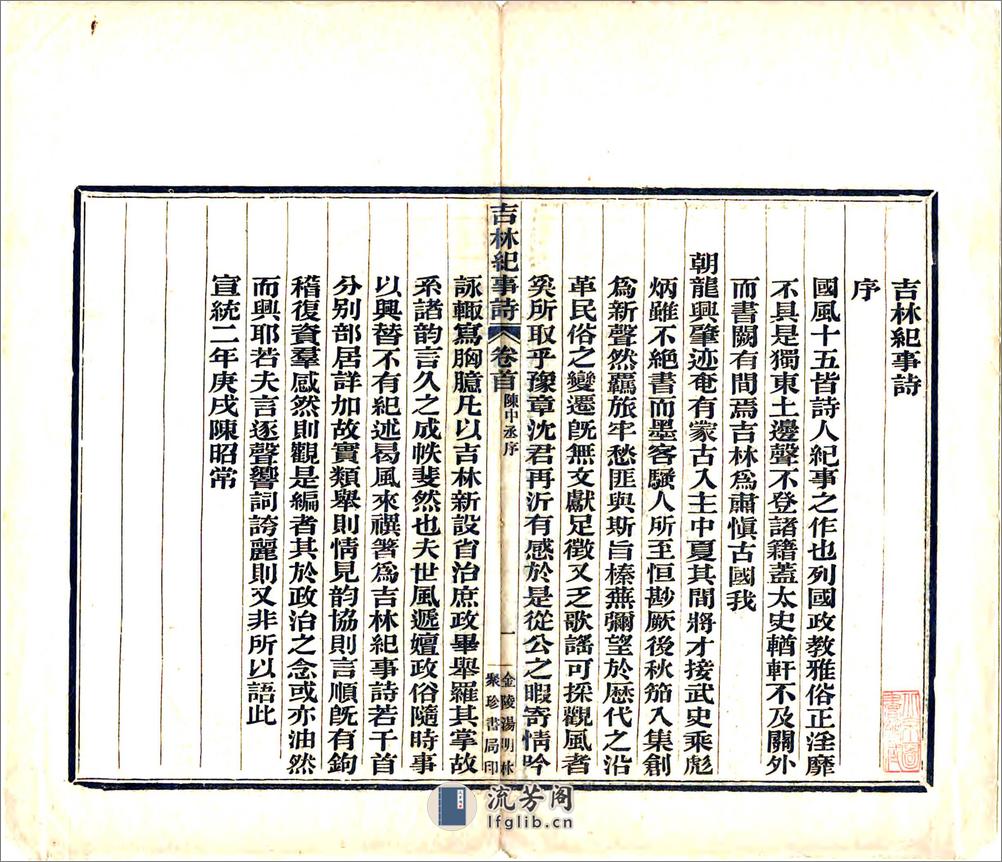 吉林紀事詩
序
國風十五皆詩人紀事之作也列國政教雅俗正淫靡
不具是獨東土邊聲不登諸籍蓋太史輶軒不及關外
而書闕有間焉吉林爲肅愼古國我
朝龍興肇迹奄有蒙古入主中夏其間將才接武史乘彪
炳雖不絕書而墨客騷人所至恒尠厥後秋笳入集創
爲新聲然羈旅牢愁匪與斯旨榛蕪彌望於歷代之沿
革民俗之變遷旣無文獻足徵又乏歌謠可採觀風者
奚所取乎豫章沈君再沂有感於是從公之暇寄情吟
吉林紀事詩 卷首 陳中丞序 一
金陵湯明林
聚珍書局印
詠輒寫胸臆凡以吉林新設省治庶政畢舉羅其掌故
系諸韵言久之成帙斐然也夫世風遞嬗政俗隨時事
以興替不有紀述曷風來禩箸爲吉林紀事詩若干首
分别部居詳加故實類舉則情見韵協則言順旣有鉤
稽復資羣感然則觀是編者其於政治之念或亦油然
而興耶若夫言逐聲響詞誇麗則又非所以語此
宣統二年庚戌陳昭常
流芳阁
lfglib.cn